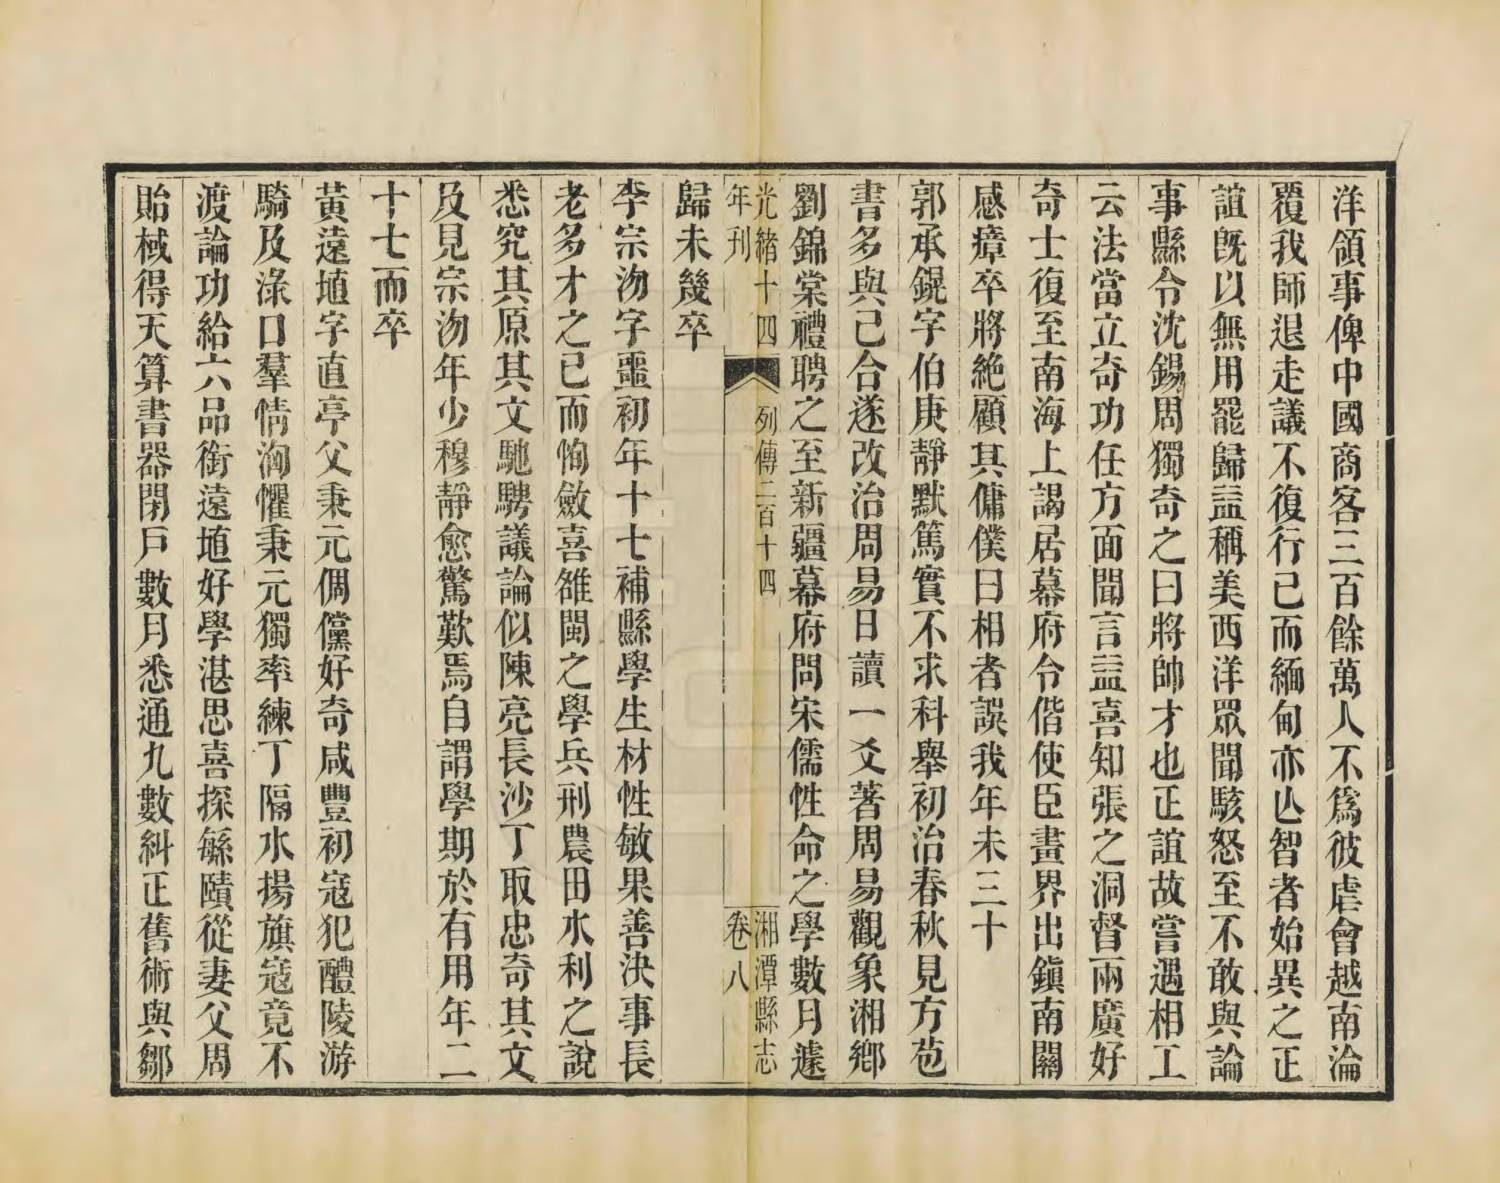 洋領事俾中國商客三百餘萬人不爲彼虐會越南淪
覆我師退走議不復行已而緬甸亦亾智者始異之正
誼旣以無用罷歸益稱美西洋眾聞駭怒至不敢與論
事縣令沈錫周獨奇之曰將帥才也正誼故嘗遇相工
云法當立奇功任方面聞言益喜知張之洞督兩廣好
奇士復至南海上謁居幕府令偕使臣畫界出鎭南關
感瘴卒將絶顧其傭僕曰相者誤我年未三十
郭承錕字伯庚靜默篤實不求科舉初治春秋見方苞
書多與己合遂改治周易日讀一爻著周易觀象湘鄉
劉錦棠禮聘之至新疆幕府問宋儒性命之學數月遽
光緒十四年刊
列傳二百十四
湘潭縣志卷八
歸未幾卒
李宗沕字噩初年十七補縣學生材性敏果善決事長
老多才之已而恂斂喜雒閩之學兵刑農田水利之說
悉究其原其文馳騁議論似陳亮長沙丁取忠奇其文
及見宗沕年少穆靜愈驚歎焉自謂學期於有用年二
十七而卒
黃遠埴字直亭父秉元倜儻好奇咸豐初寇犯醴陵游
騎及淥口羣情洶懼秉元獨率練丁隔水揚旗寇竟不
渡論功給六品銜遠埴好學湛思喜探緐賾從妻父周
貽棫得天算書器閉戸數月悉通九數糾正舊術與鄒